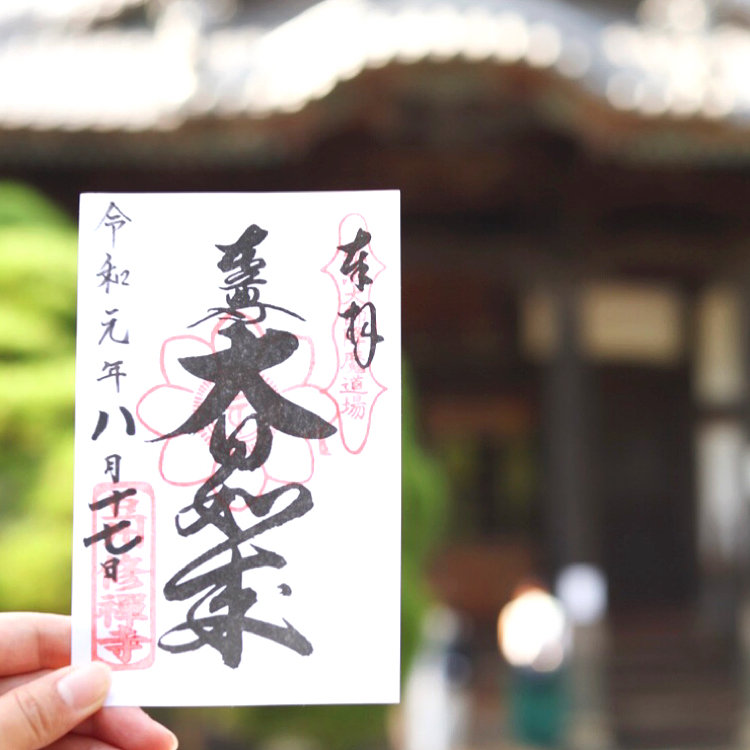 奉拝
魔道場
大日如来
令和元年八月十七日
修禪寺